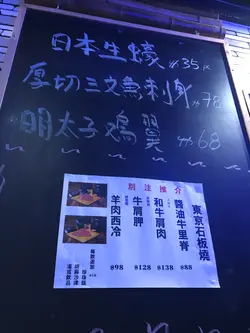 日本生蠔 $35/K
厚切三文魚刺身 $78
明太子鸡翼 $68
別注推介
東京石板燒
醬油牛里脊 $88
和牛肩肉 $138
牛肩胛 $128
羊肉西冷 $98